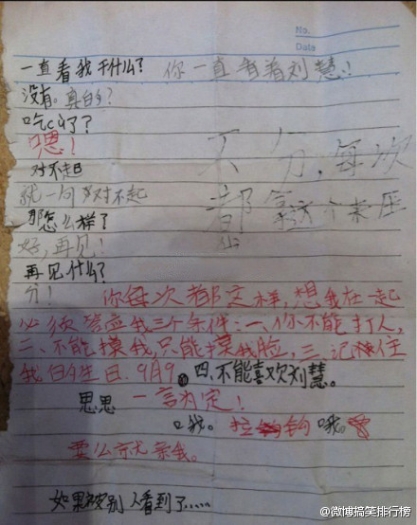 No.
Date
一直看我干什么? 你一直看着刘慧!
没有。真的?
吃cù了?
嗯!
对不起
就一句对不起
那怎么样了?
好,再见!
再见什么?
分!
不分,每次
都拿这个来压
你每次都这样,想我在一起
必须答应我三个条件:一、你不能打人,
二、不能摸我,只能摸我脸,三、记住
我的生日.9月9。四、不能喜欢刘慧。
思思 一言为定!
口我。拉钩 哦。
要么亲我。
如果被别人看到了.....
@微博搞笑排行榜